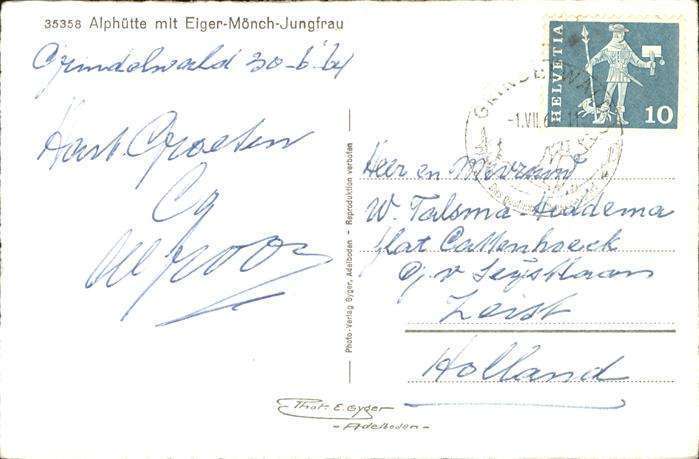 35358 Alphütte mit Eiger-Mönch-Jungfrau
Grindelwald 30-6-'61
Hart. Groeten
HELVETIA
10
GRINDELWALD
-1.VII.6
Photo-Verlag Gyger, Adelboden - Reproduktion verboten
Heer en Mevrouw
W. Talsma-Hiddema
flat Cattenhoeck
Zeist
Holland
Phot. E. Gyger
- Adelboden -